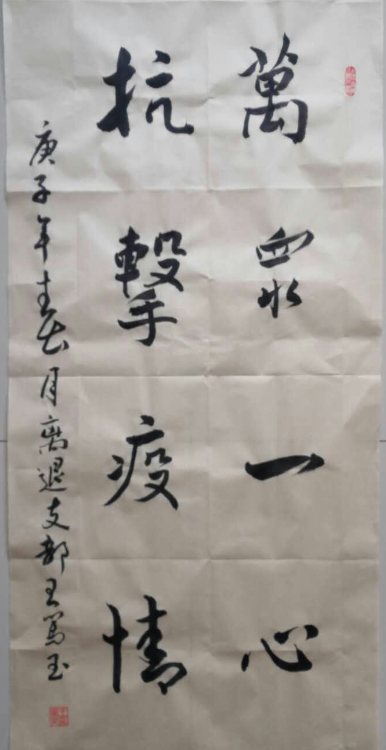 萬眾一心
抗擊疫情
庚子年吉月離退支部王篤玉